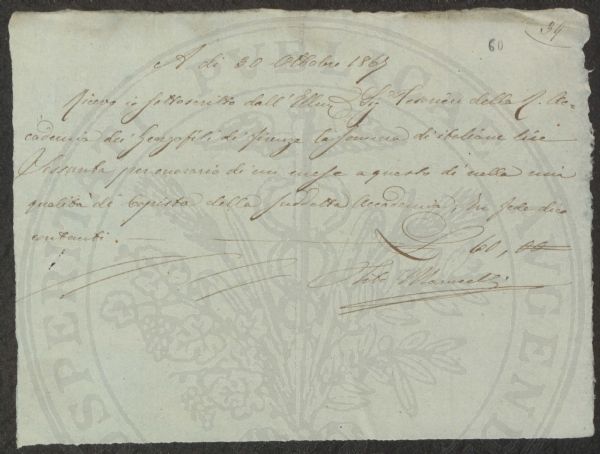 34
60
A di 30 Ottobre 1867
Ricevo io sottoscritto dall' Illmo Sig Tesoriere della R. Ac-
cademia dei Georgofili di Firenze la somma di italiane lire
Sessanta per onorario di un mese a questo dì nella mia
qualità di Copista della suddetta Accademia, In fede dico
contanti. — — £ 60, 00